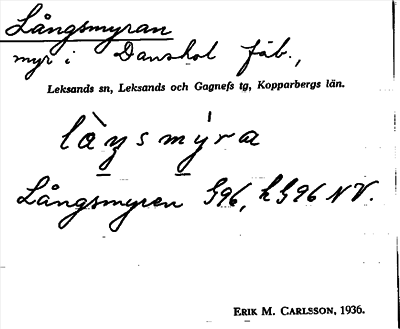 Långsmyran
myr i Danshol fäb.,
Leksands sn, Leksands och Gagnefs tg, Kopparbergs län.
làŋsmýra
Långsmyren G96, h G96 NV.
ERIK M. CARLSSON, 1936.